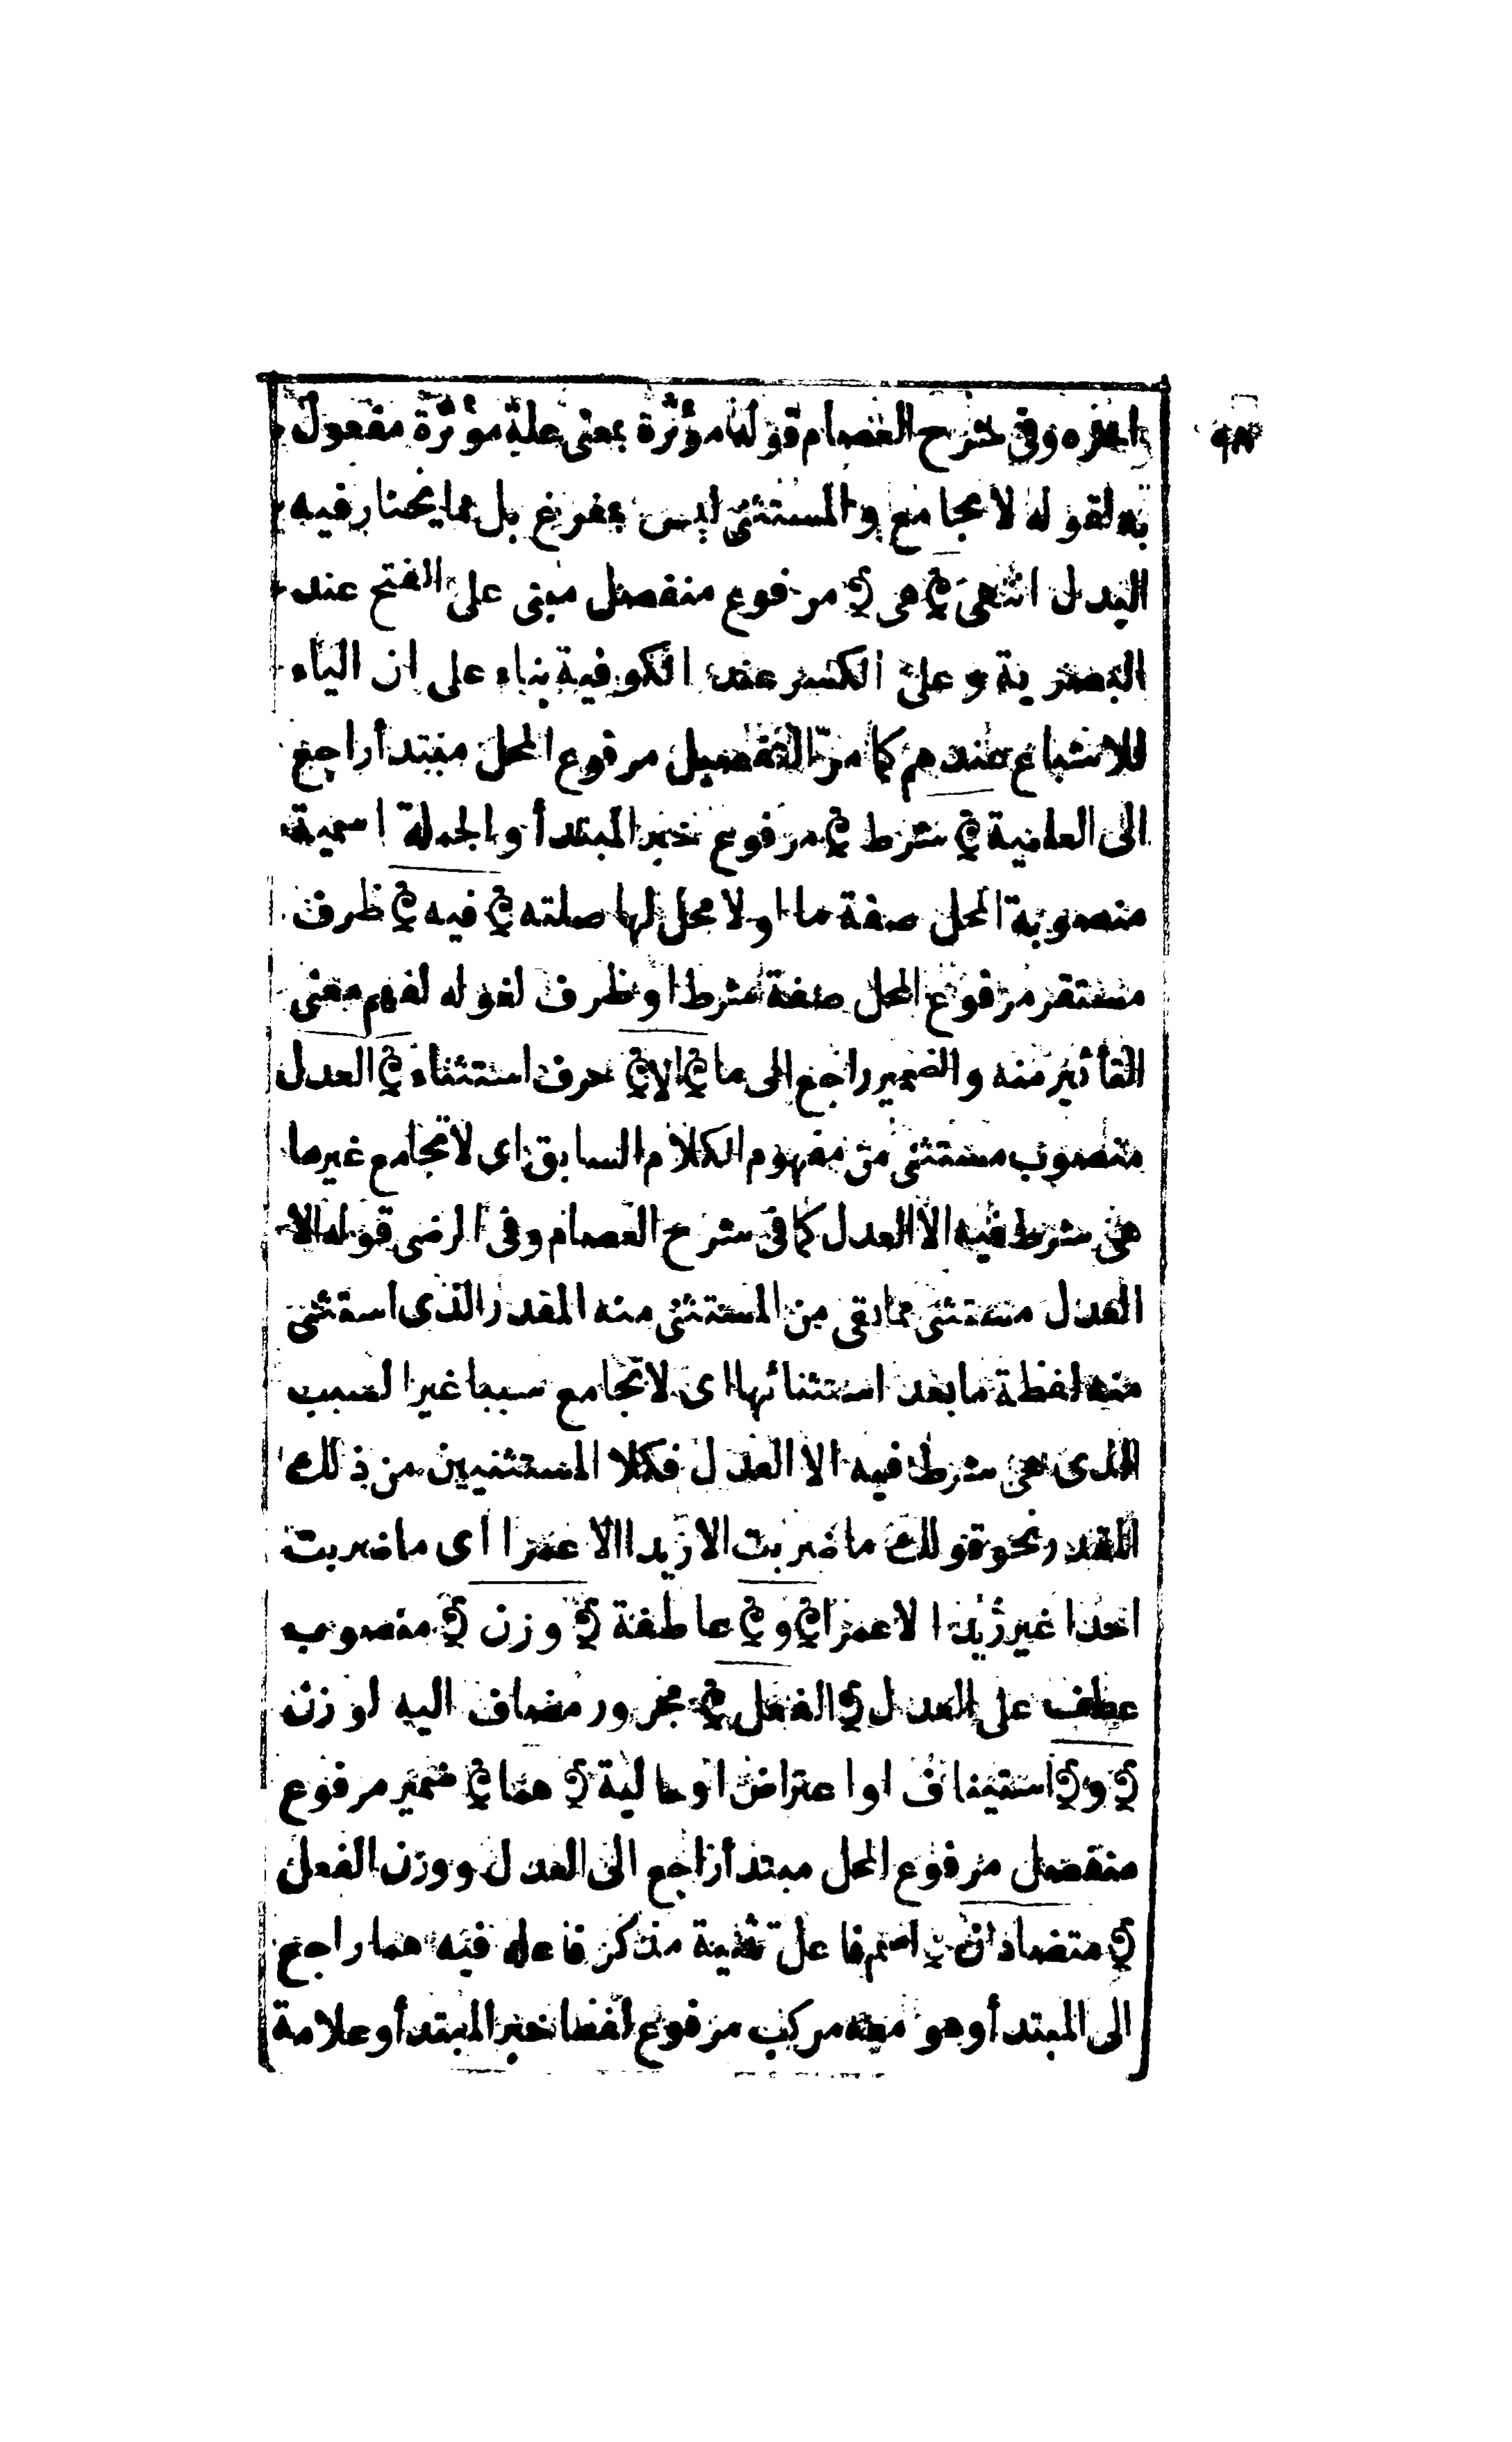 ٩٨
اخره وفى شرح العصام قوله مؤثرة بمعنى علة مؤثرة مفعول
به لقوله لا تجامع والمستثنى ليس بمفرغ بل مما يختار فيه
البدل انتهى ﴿ هى ﴾ مرفوع منفصل مبنى على الفتح عند
البصرية وعلى الكسر عند الكوفية بناء على ان الياء
للاشباع عندهم كما مرّ التفصيل مرفوع المحل مبتدأ راجع
الى العلمية ﴿ شرط ﴾ مرفوع خبر المبتدأ والجملة اسمية
منصوبة المحل صفة ما او لا محل لها صلته ﴿ فيه ﴾ ظرف
مستقر مرفوع المحل صفة شرط او ظرف لغو له لفهم معنى
التأثير منه والضمير راجع الى ما ﴿ الا ﴾ حرف استثناء ﴿ العدل
منصوب مستثنى من مفهوم الكلام السابق اى لا تجامع غير ما
هى شرط فيه الا العدل كما فى شرح العصام وفى الرضى قوله الا
العدل مستثنى مما بقى من المستثنى منه المقدر الذى استثنى
منه لفظة ما بعد استثنائها اى لا تجامع سببا غير السبب
الذى هى شرط فيه الا العدل فكلا المستثنيين من ذلك
المقدر نحو قولك ما ضربت الا زيدا الا عمرا اى ما ضربت
احدا غير زيد الا عمرا ﴿ و ﴾ عاطفة ﴿ وزن ﴾ منصوب
عطف على العدل ﴿ الفعل ﴾ مجرور مضاف اليه لوزن
﴿ و ﴾ استيناف او اعتراض او حالية ﴿ هما ﴾ ضمير مرفوع
منفصل مرفوع المحل مبتدأ راجع الى العدل ووزن الفعل
﴿ متضادان ﴾ اسم فاعل تثنية مذكر فاعله فيه هما راجع
الى المبتدأ وهو معه مركب مرفوع لفظا خبر المبتدأ وعلامة